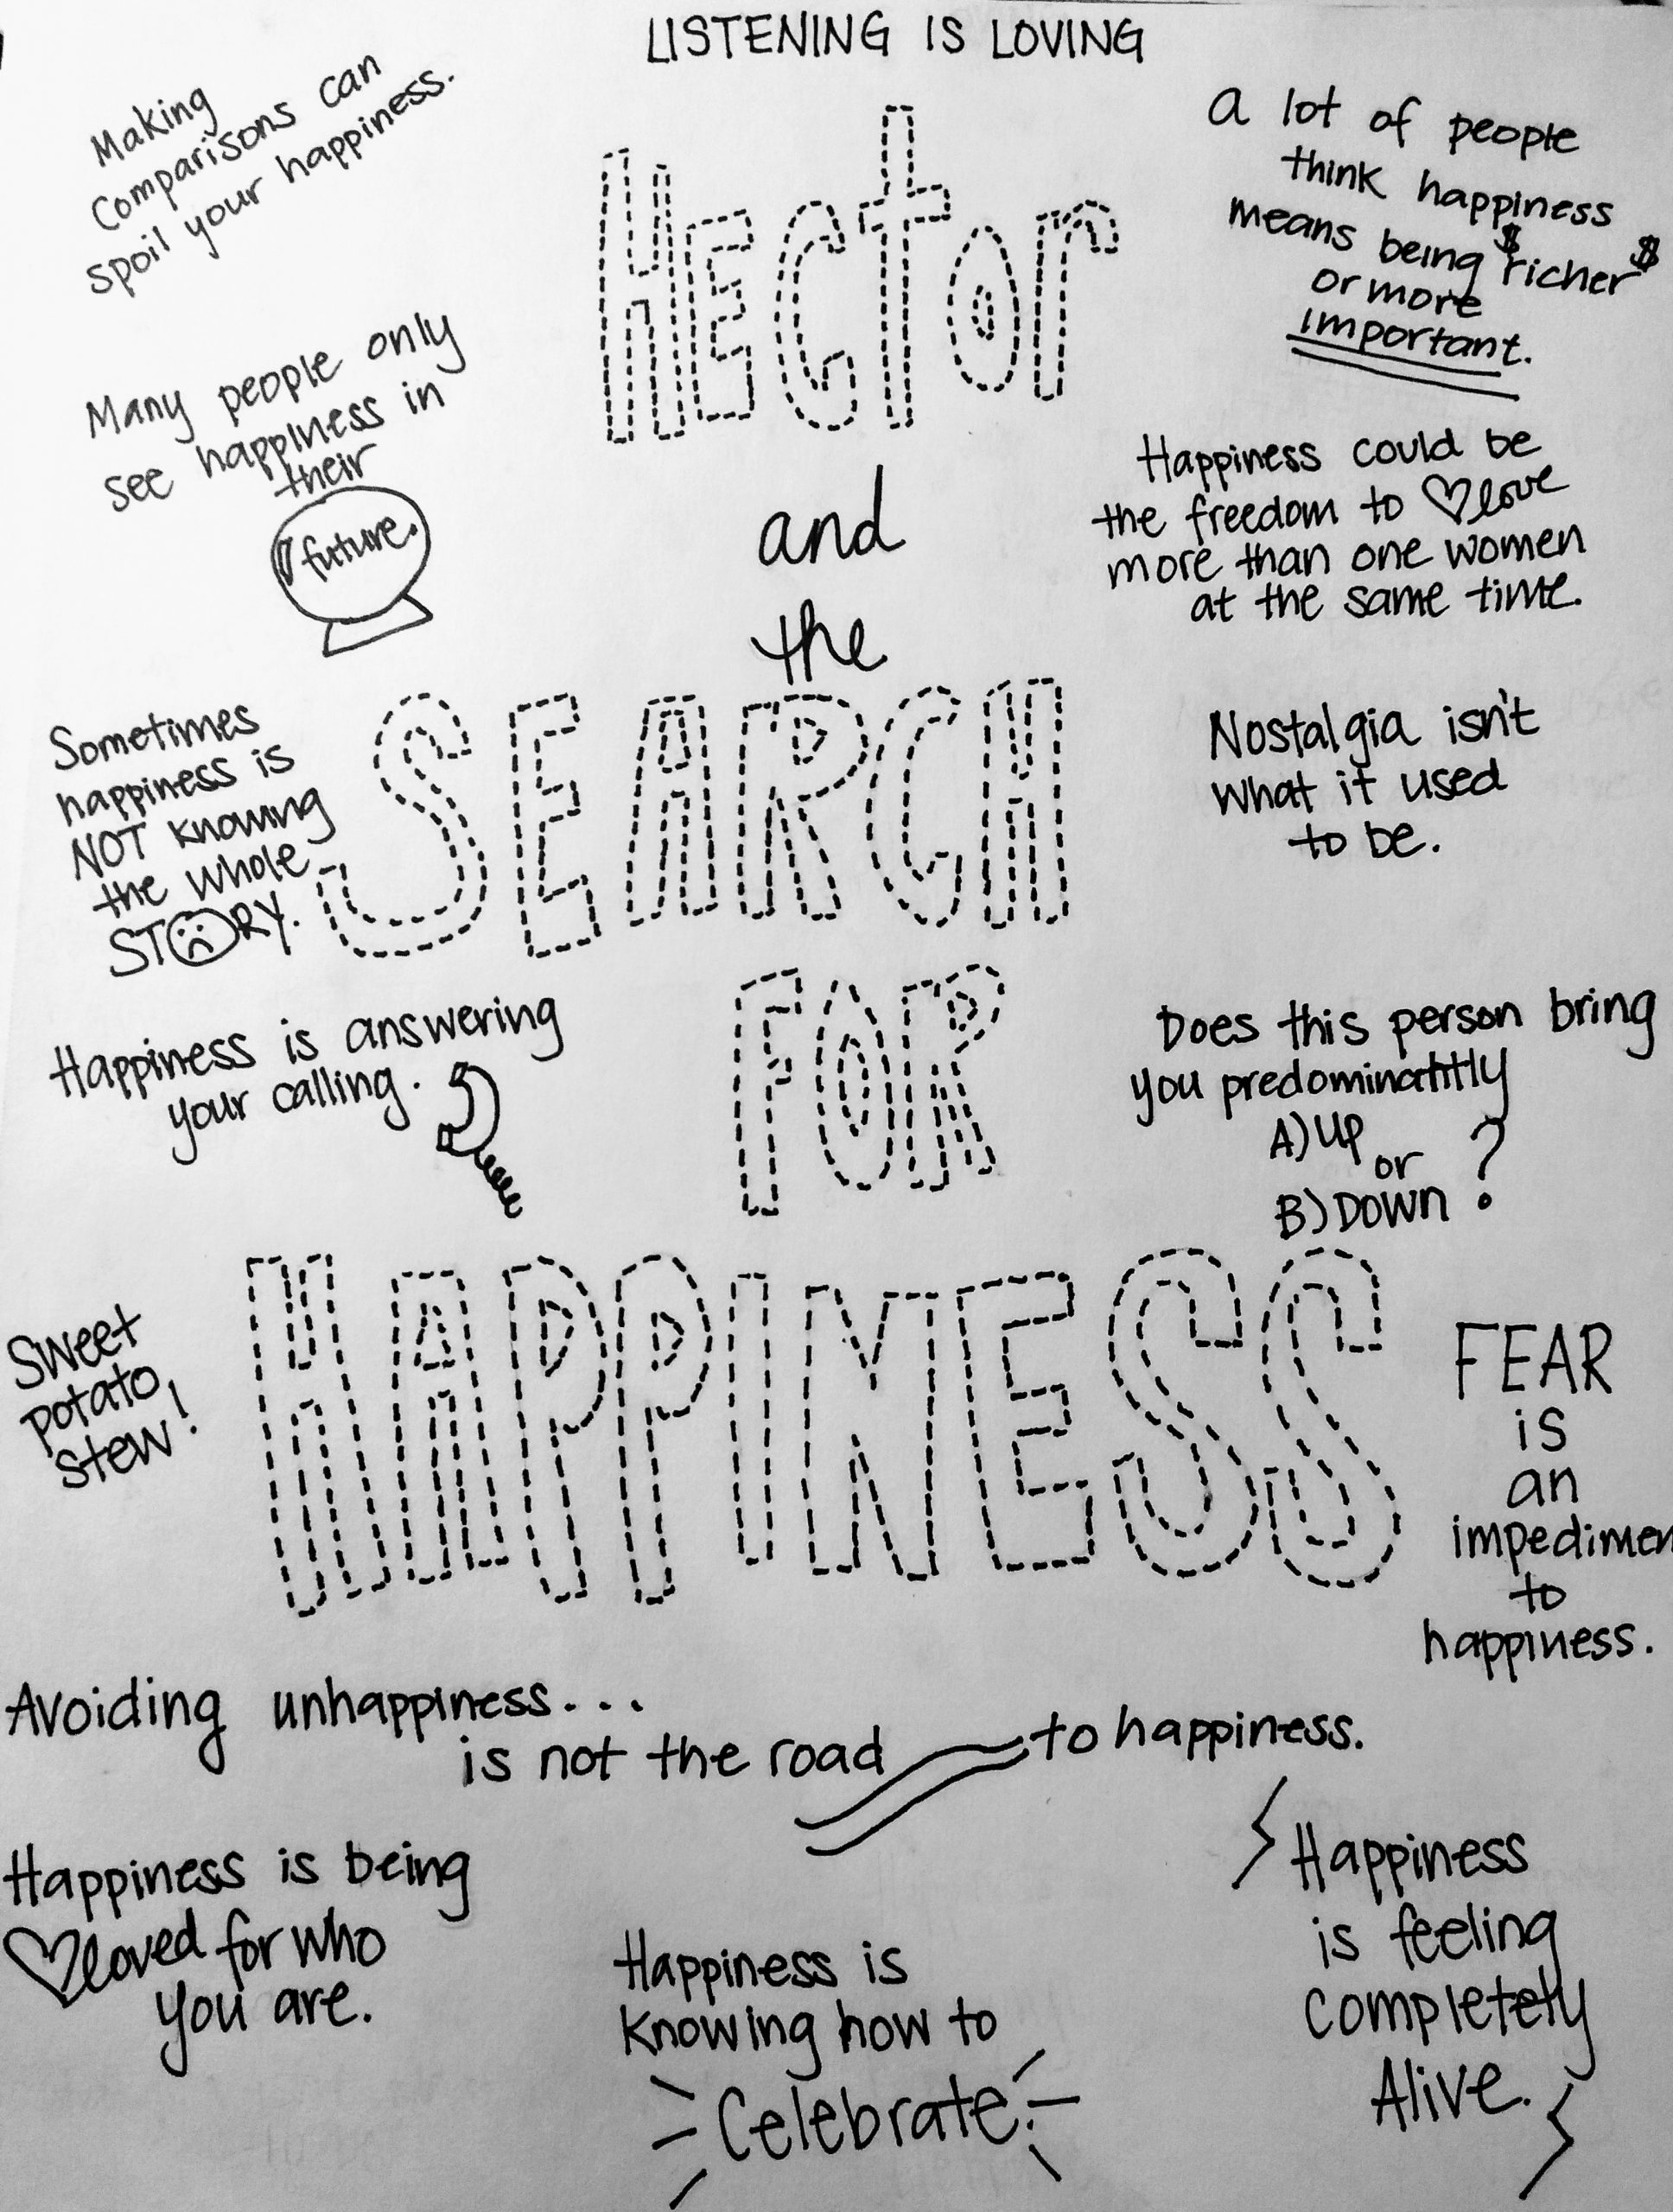 LISTENING IS LOVING
Making
Comparisons can
spoil your happiness.
Hector
a lot of people
think happiness
means being $richer$
or more
important.
Many people only
see happiness in
their
future.
and
the
Happiness could be
the freedom to love
more than one women
at the same time.
Sometimes
happiness is
NOT knowing
the whole
STORY.
SEARCH
Nostalgia isn't
what it used
to be.
Happiness is answering
your calling.
FOR
Does this person bring
you predominatitly
A) UP
or
B) DOWN ?
Sweet
potato
stew!
HAPPINESS
FEAR
is
an
impedimen
to
happiness.
Avoiding unhappiness...
is not the road to happiness.
Happiness is being
loved for who
you are.
Happiness is
knowing how to
Celebrate.
Happiness
is feeling
completely
Alive.